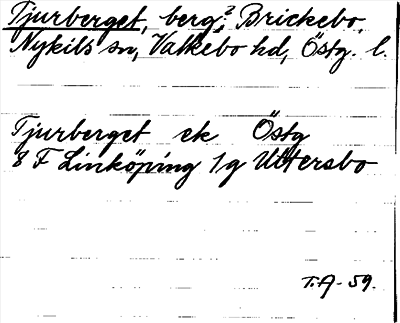 Tjurberget, berg? Brickebo,
Nykils sn, Valkebo hd, Östg. l.
Tjurberget ek Östg
8 F Linköping 1g Ultersbo
T.A-59.